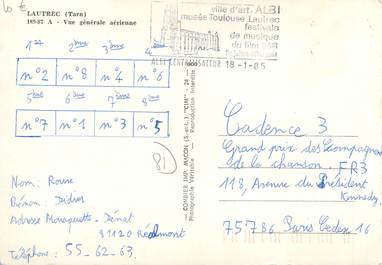 10 €
LAUTREC (Tarn)
189-37 A - Vue générale aérienne
ville d'art - ALBI
musée Toulouse Lautrec
festivals
de musique
du film
ALBI CENTRALISATEUR 18-1-85
1ère 2ème 3ème 4ème
n°2 n°8 n°4 n°6
5ème 6ème 7ème 8ème
n°7 n°1 n°3 n°5
81
COMBIER IMP. MACON (S.-et-L.) "CIM"
Photographie Véritable - Reproduction Interdite
Nom:
Prénom: Didier
Adresse - Dénat
81120 Réalmont
Téléphone: 55-62-63.
Cadence 3
Grand prix des Compagnons
de la chanson. FR3
118, Avenue du Président
Kennedy.
75786 Paris Cedex 16